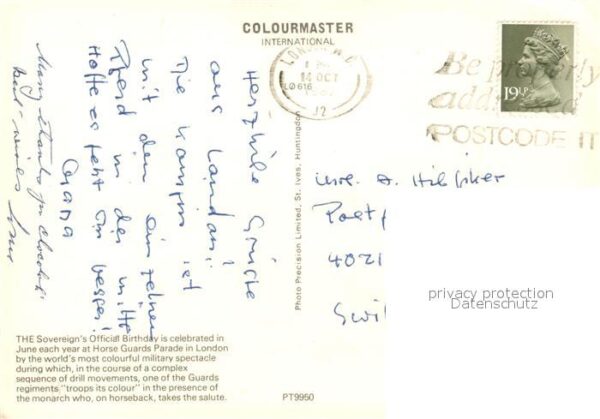 COLOURMASTER
INTERNATIONAL
Herzliche Grüsse
aus London!
Die Königin ist
mit dem einzelnen
Pferd in der Mitte
Hoffe es geht Dir besser!
Many thanks for
Photo Precision Limited, St. Ives, Huntingdon
LONDON
14 OCT
LO616
J2
Be properly
addressed
POSTCODE IT
19½P
Mrs. A. Hilfiker
Postf
4021
Swi
privacy protection
Datenschutz
THE Sovereign's Official Birthday is celebrated in
June each year at Horse Guards Parade in London
by the world's most colourful military spectacle
during which, in the course of a complex
sequence of drill movements, one of the Guards
regiments "troops its colour" in the presence of
the monarch who, on horseback, takes the salute.
PT9950